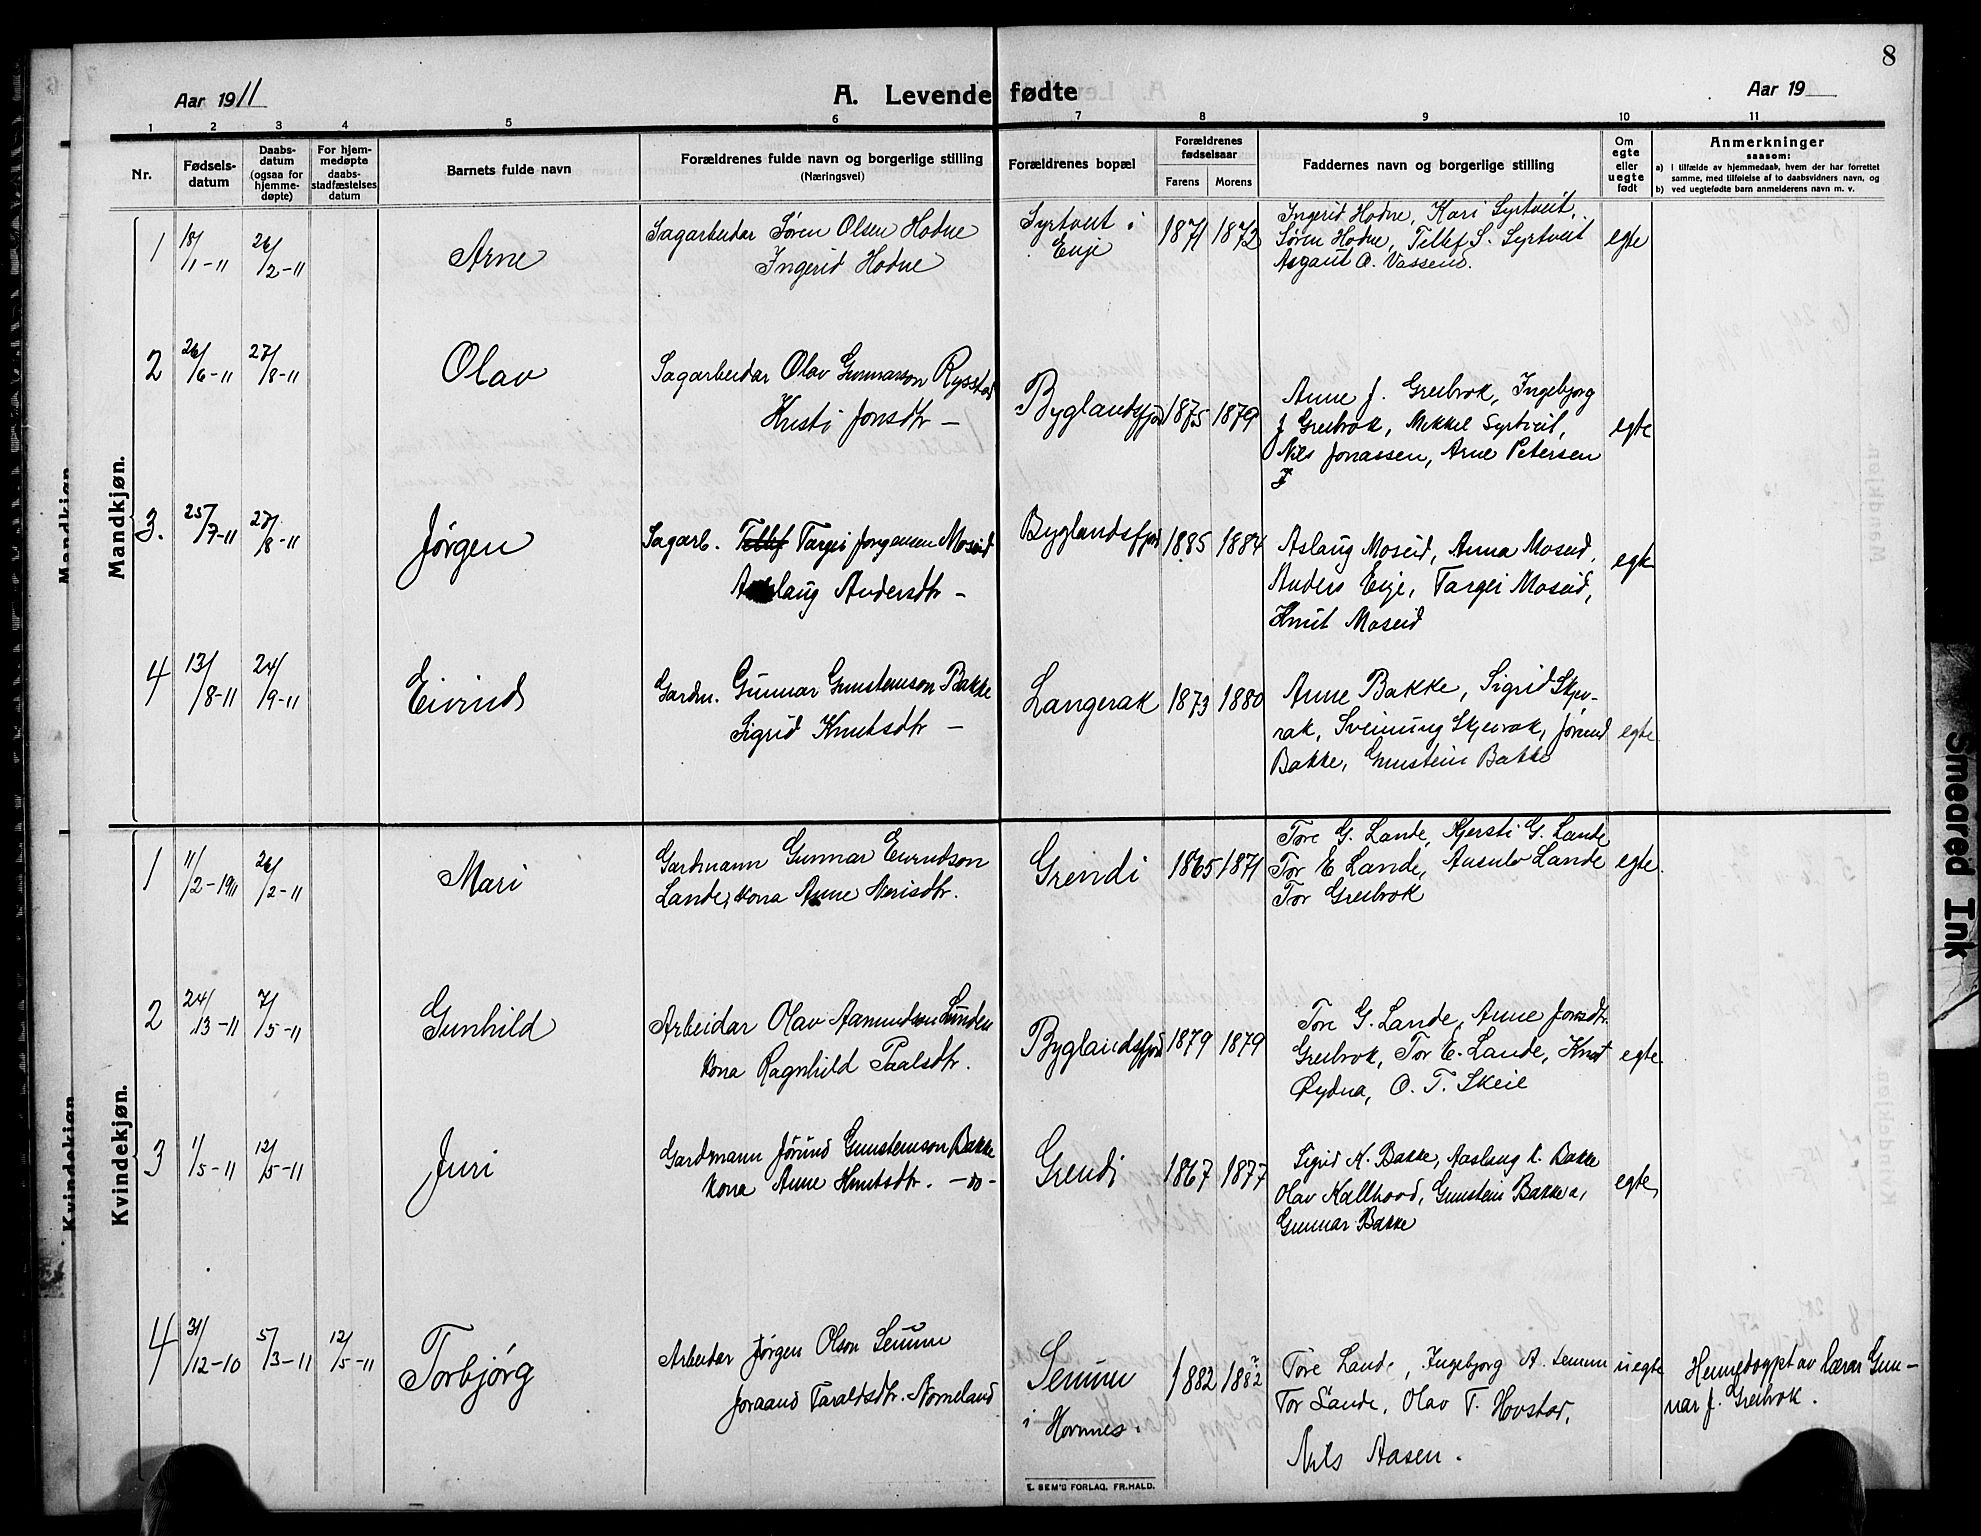 8
Aar 1911
A. Levende fødte
Aar 19
1 2 3 4 5 6 7 8 9 10 11
Nr.
Fødsels-
datum
Daabs-
datum
(ogsaa for
hjemme-
døpte)
For hjem-
medøpte
daabs-
stadfæstelses
datum
Barnets fulde navn
Forældrenes fulde navn og borgerlige stilling
(Næringsvei)
Forældrenes bopæl
Forældrenes
fødselsaar
Farens Morens
Faddernes navn og borgerlige stilling
Om
egte
eller
uegte
født
Anmerkninger
saasom:
a) I tilfælde av hjemmedaab, hvem der har forrettet
samme, med tilføielse af to daabsvidners navn, og
b) ved uegtefødte barn anmelderens navn m. v.
Mandkjøn.
1 18/1-11 26/2-11 Arne
Sagarbeidar Søren Olsen Hodne
Ingerid Hodne
Syrtveit i
Evje
1871 1872
Ingerid Hodne, Kari Syrtveit,
Søren Hodne, Tellef S. Syrtveit
Asgaut O. Vassend.
egte
2 26/6-11 27/8-11 Olav
Sagarbeidar Olav Gunnarson Rysstad
Kristi Jonsdtr —
Byglandsfjord
1875 1879
Anne J. Greibrok, Ingebjorg
J Greibrok, Mikkel Syrtveit,
Nils Jonassen, Arne Petersen
egte
3. 25/7-11 27/8-11 Jørgen
Sagarb. Tellef Targei Jorgensen Moseid
Aslaug Andersdtr —
Byglandsfjord
1885 1884
Aslaug Moseid, Anna Moseid,
Anders Evje, Targei Moseid,
Knut Moseid
egte
4 13/8-11 24/9-11 Eivind
Gardm. Gunnar Gunsteinson Bakke
Sigrid Knutsdtr —
Langerak
1873 1880
Anne Bakke, Sigrid Skjev-
rak, Sveinung Skjevrak, Jørund
Bakke, Gunstein Bakke
egte
Kvindekjøn.
1 11/2-1911 26/2-11 Mari
Gardmann Gunnar Eivindson
Lande, kona Anne Nerisdtr.
Grendi
1865 1871
Tore G. Lande, Kjersti G. Lande
Tor E Lande, Aasulv Lande
Tor Greibrok
egte.
2 24/3-11 7/5-11 Gunhild
Arbeidar Olav Aamundson Lunden
kona Ragnhild Paalsdtr.
Byglandsfjord
1879 1879
Tore G. Lande, Anne Jonsdtr.
Greibrok, Tor E. Lande, Knut
Øydna, O. T. Skeie
egte.
3 1/5-11 12/5-11 Juri
Gardmann Jørund Gunsteinson Bakke
kona Anne Knutsdtr. —do-
Grendi
1867 1877
Sigrid K. Bakke, Aaslaug K. Bakke
Olav Kallhovd, Gunstein Bakke,
Gunnar Bakke
egte,
4 31/12-10 5/3-11 12/5-11 Torbjørg
Arbeidar Jørgen Olson Senum
Joraand Taraldsdtr. Norneland
Senum
i Hornnes.
1882 1882
Tore Lande, Ingebjorg A. Senum
Tor Lande, Olav T. Hovstad,
Nils Aasen.
uegte
Heimedøypt av lærar Gun-
nar J. Greibrok.
E. SEM'S FORLAG, FR.HALD.
Mandkjøn
Kvindekjøn
Smeared Ink